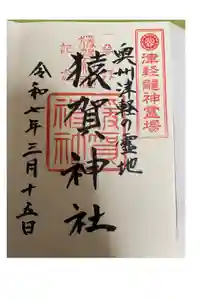 津軽龍神霊場
奥州津軽の霊地
猿賀神社
令和七年三月十五日